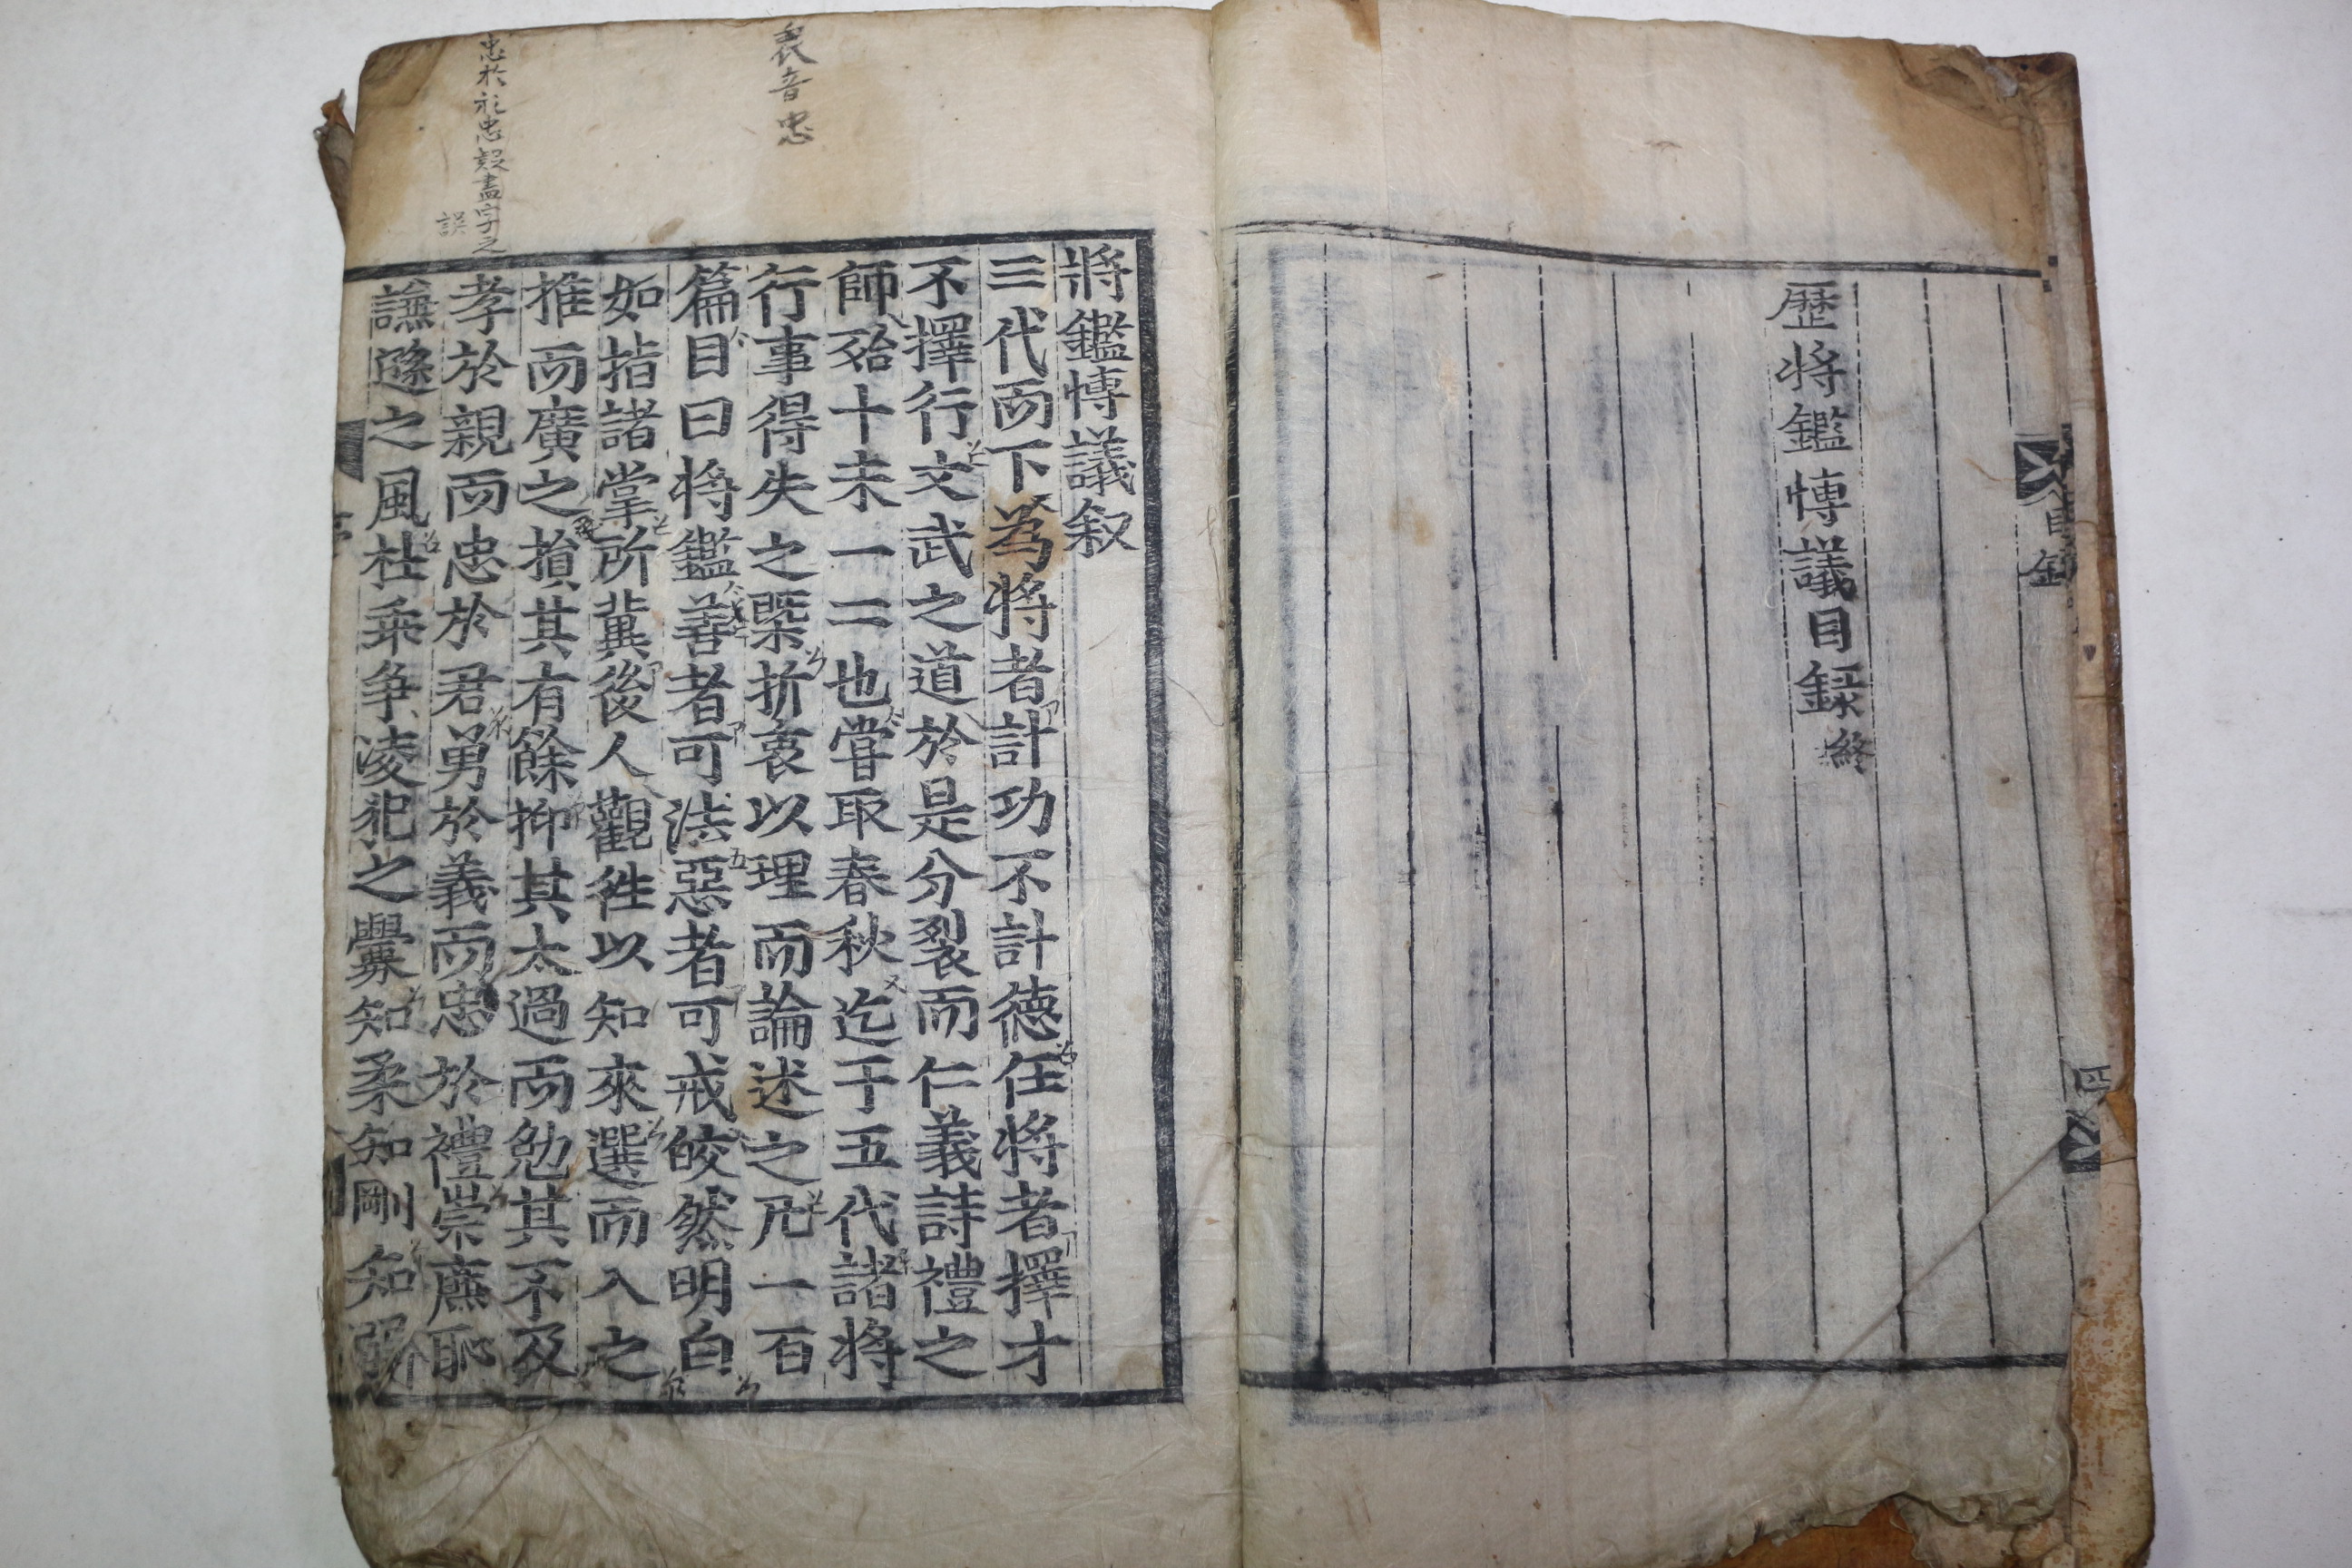 歷將鑑愽議目録終
目録
四
將鑑愽議叙
三代而下為將者計功不計德任將者擇才
不擇行文武之道於是分裂而仁義詩禮之
師殆十未一二也嘗取春秋迄于五代諸將
行事得失之槩折衷以理而論述之凡一百
篇目曰將鑑善者可法惡者可戒皎然明白
如指諸掌所冀後人觀徃以知來選而入之
推而廣之損其有餘抑其太過而勉其不及
孝於親而忠於君勇於義而忠於禮崇廉恥
謙遜之風杜乘争凌犯之釁知柔知剛知弱
衷音忠
忠於礼忠疑盡字之
誤